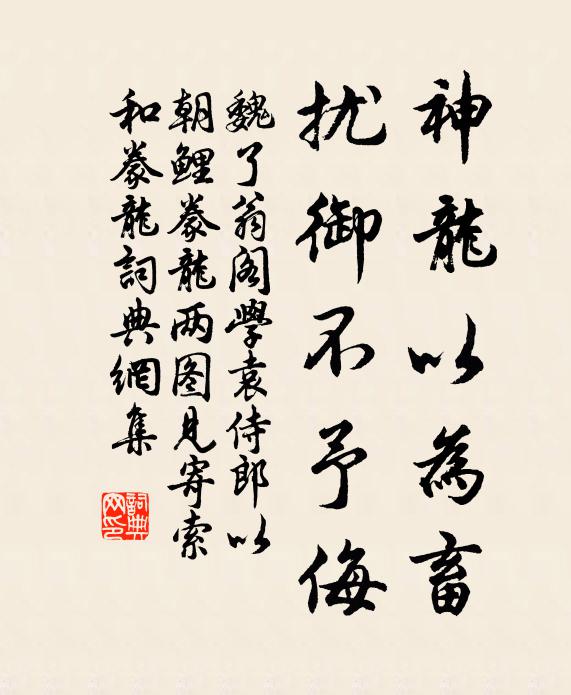 神龍以為畜
扰御不予侮
魏了翁閣學袁侍郎以
朝鯉豢龍两图見寄索
和豢龍詞典網集
詞典
网印